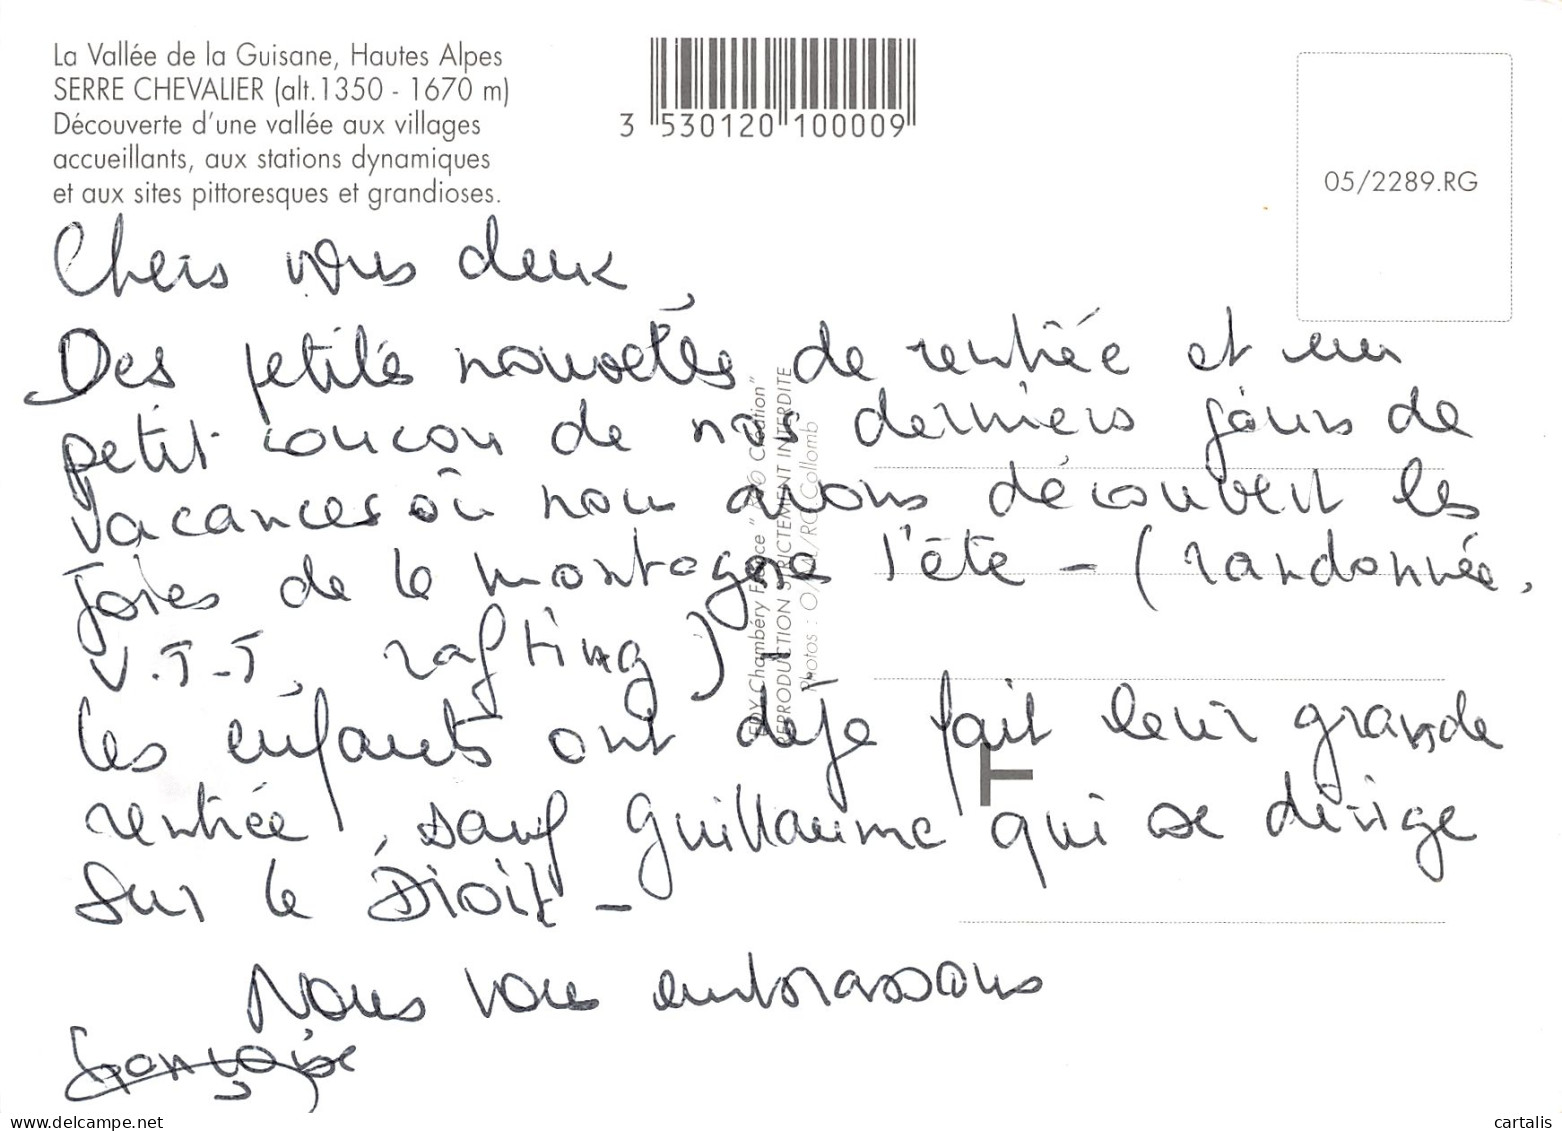 La Vallée de la Guisane, Hautes Alpes
SERRE CHEVALIER (alt.1350 - 1670 m)
Découverte d'une vallée aux villages
accueillants, aux stations dynamiques
et aux sites pittoresques et grandioses.
3 530120 100009
05/2289.RG
Chers vous deux,
Des petites nouvelles de rentrée et un
petit coucou de nos derniers jours de
vacances où nous avons découvert les
joies de la montagne l'été - (randonnée,
V.T.T, rafting) -
Les enfants ont déjà fait leur grande
rentrée, sauf Guillaume qui se dirige
sur le Droit -
Nous vous embrassons
Françoise
EDY Chambéry France "
REPRODUCTION STRICTEMENT INTERDITE
Photos : RG Collomb
delcampe.net
cartalis